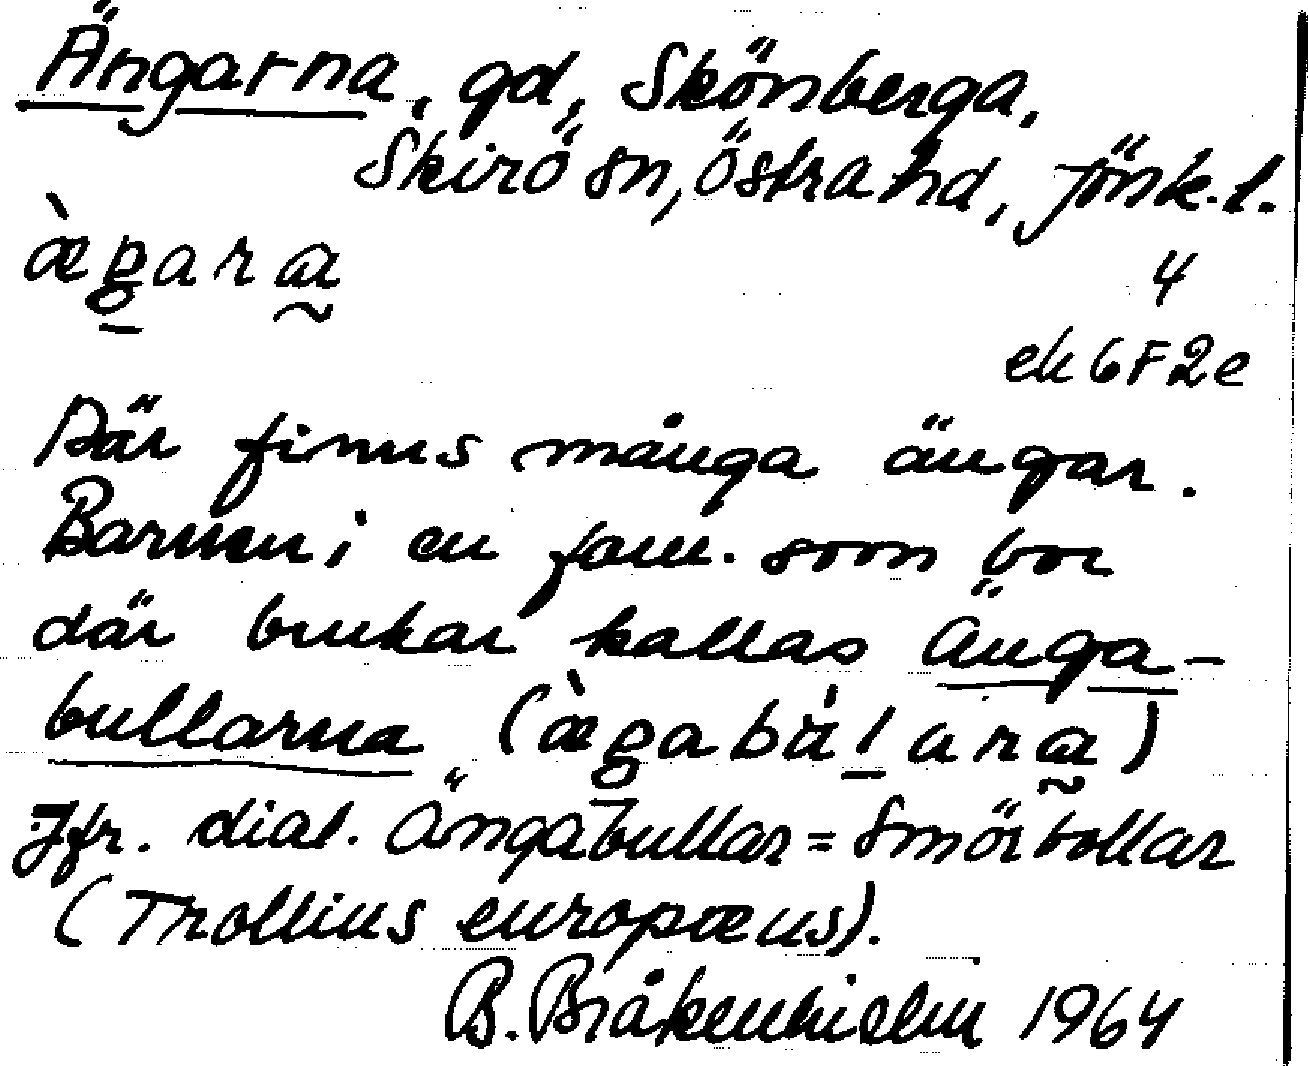 Ängarna, gd, Skönberga,
Skirö sn, Östra hd, Jönk. l.
æ̀g̠ara̰
4
ek 6F2e
Där finns många ängar.
Barnen i en fam. som bor
där brukar kallas Änga-
bullarna (æ̀gabu̇l̠ara̰)
Jfr. dial. Ängabullar = Smörbollar
(Trollius europæus).
B. Bråkenhielm 1964